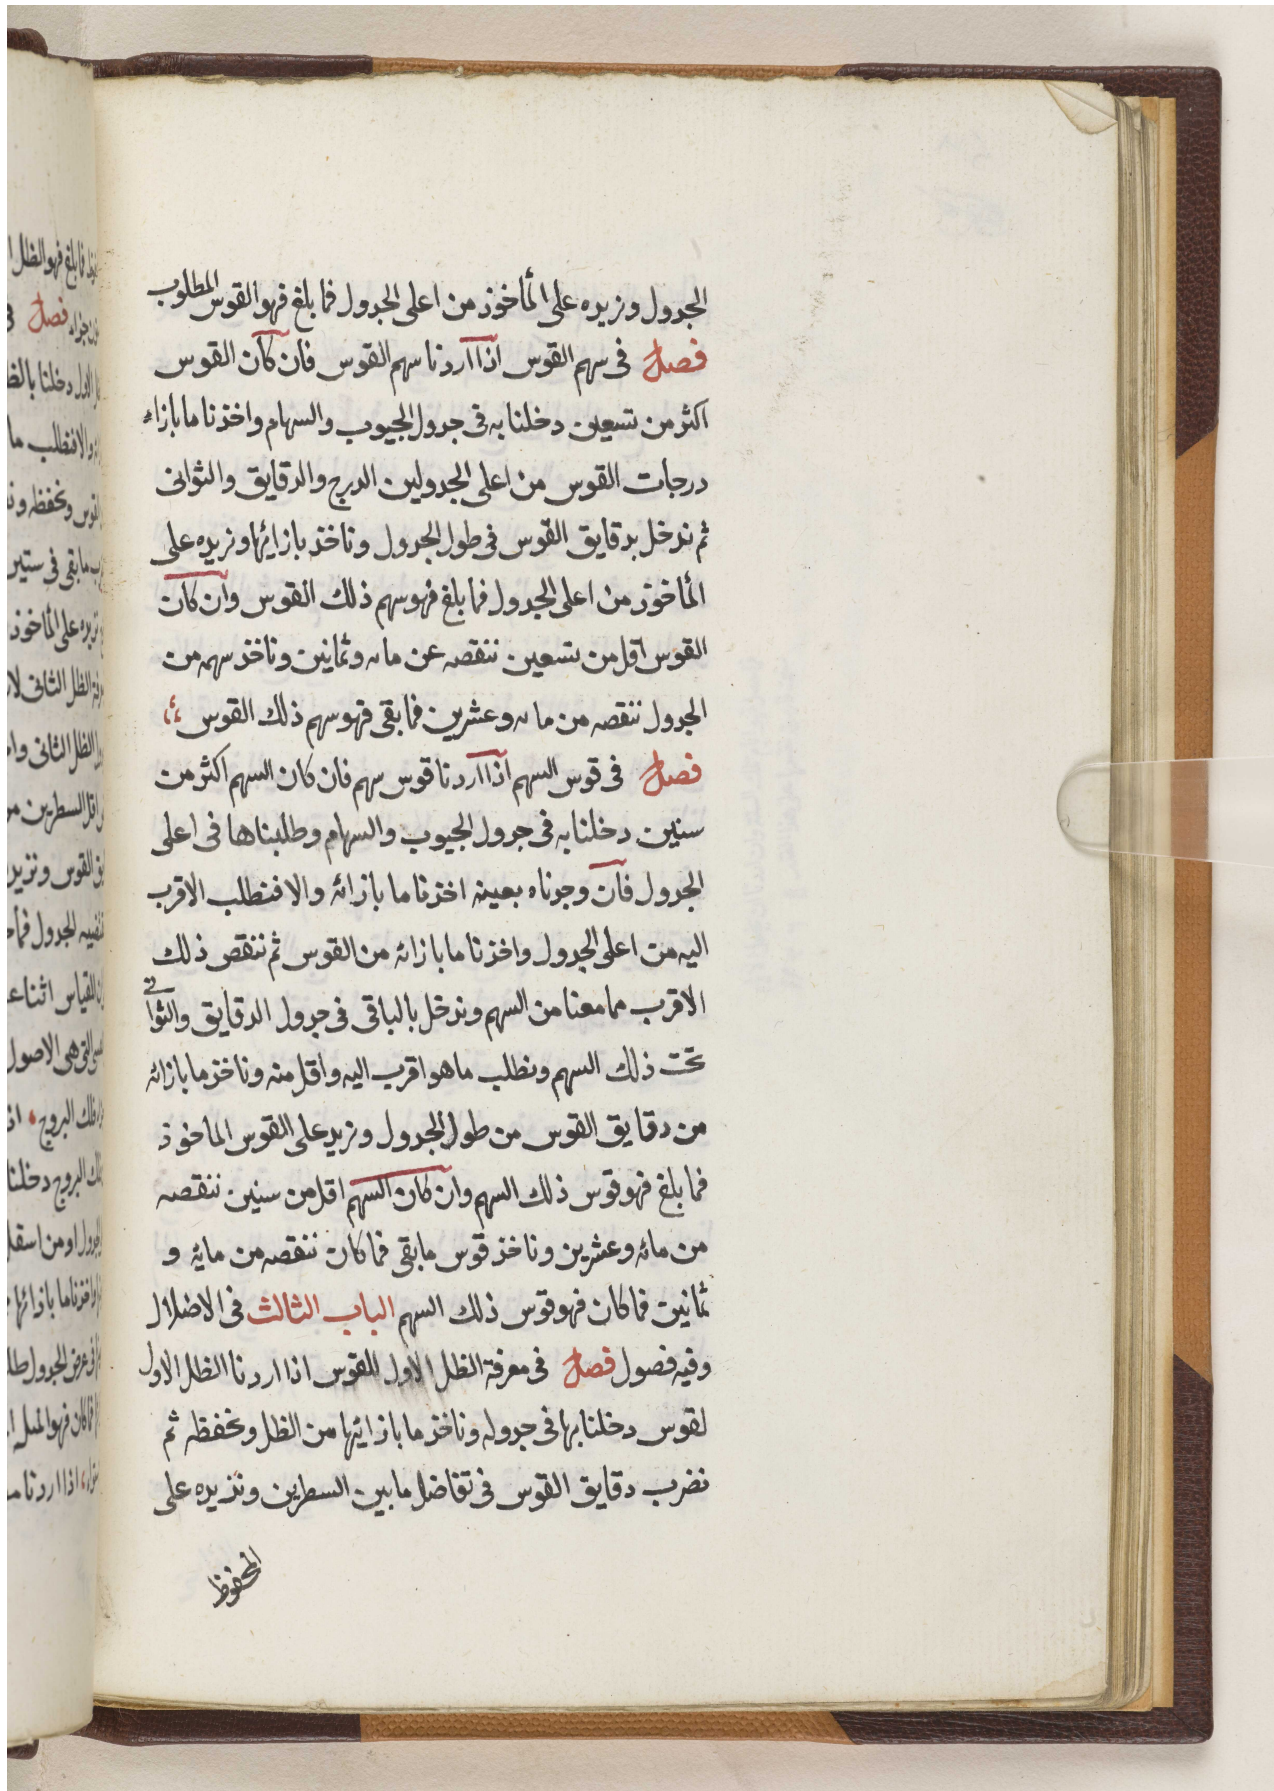 الجدول ونزيده على المأخوذ من اعلى الجدول فما بلغ فهو القوس المطلوب
فصل فى سهم القوس اذا اردنا سهم القوس فان كان القوس
اكثر من تسعين دخلنا به فى جدول الجيوب والسهام واخذنا ما بازاء
درجات القوس من اعلى الجدولين الدرج والدقايق والثوانى
ثم ندخل بدقايق القوس فى طول الجدول وناخذ بازائها ونزيده على
المأخوذ من اعلى الجدول فما بلغ فهو سهم ذلك القوس وان كان
القوس اقل من تسعين ننقصه عن مائه وثمانين وناخذ سهمه من
الجدول ننقصه من مائه وعشرين فما بقى فهو سهم ذلك القوس
فصل فى قوس السهم اذا اردنا قوس سهم فان كان السهم اكثر من
ستين دخلنا به فى جدول الجيوب والسهام وطلبناها فى اعلى
الجدول فان وجدناه بعينه اخذنا ما بازائه والا فنطلب الاقرب
اليه من اعلى الجدول واخذنا ما بازائه من القوس ثم ننقص ذلك
الاقرب مما معنا من السهم وندخل بالباقى فى جدول الدقايق والثوانى
تحت ذلك السهم ونطلب ما هو اقرب اليه واقل منه وناخذ ما بازائه
من دقايق القوس من طول الجدول ونزيد على القوس الماخوذ
فما بلغ فهو قوس ذلك السهم وان كان السهم اقل من ستين ننقصه
من مائه وعشرين وناخذ قوس ما بقى فما كان ننقصه من مائة و
ثمانين فما كان فهو قوس ذلك السهم الباب الثالث فى الاضلال
وفيه فصول فصل فى معرفة الظل الاول للقوس اذا اردنا الظل الاول
لقوس دخلنا بها فى جدوله وناخذ ما بازائها من الظل ونحفظه ثم
نضرب دقايق القوس فى تفاضل ما بين السطرين ونزيده على
المحفوظ